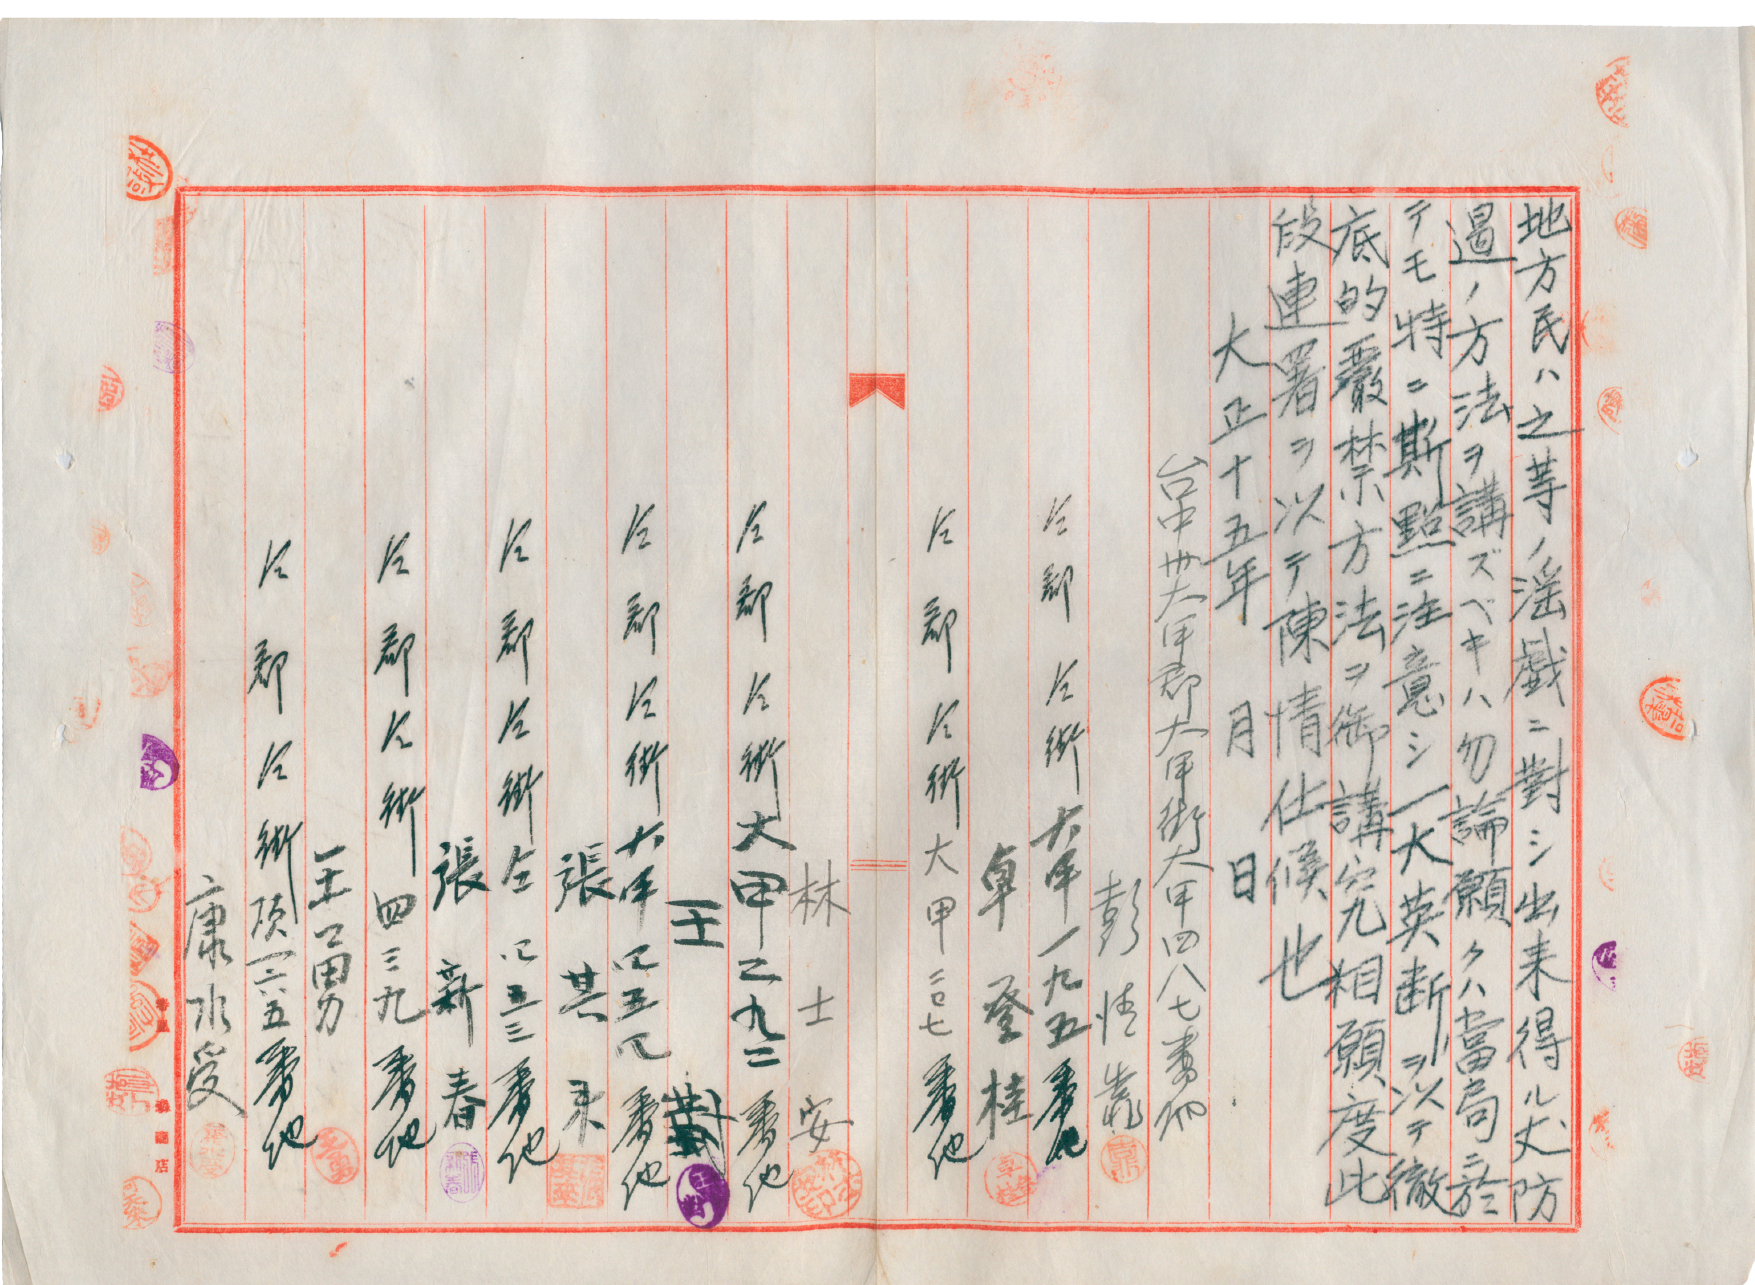 地方民ハ之等ノ淫戯ニ對シ出来得ル丈防
遏ノ方法ヲ講ズベキハ勿論願クハ當局ニ於
テモ特ニ斯點ニ注意シ一大英断ヲ以テ徹
底的嚴禁方法ヲ御講究相願度此
段連署ヲ以テ陳情仕候也
大正十五年 月 日
台中州大甲郡大甲街大甲四八七番地
彭清靠
仝郡仝街大甲一九五番地
卓登桂
仝郡仝街大甲二七番地
林士安
仝郡仝街大甲二九二番地
王對
仝郡仝街大甲四五四番地
張其来
仝郡仝街仝四五三番地
張新春
仝郡仝街四三九番地
王勇
仝郡仝街頂一二五番地
康水受